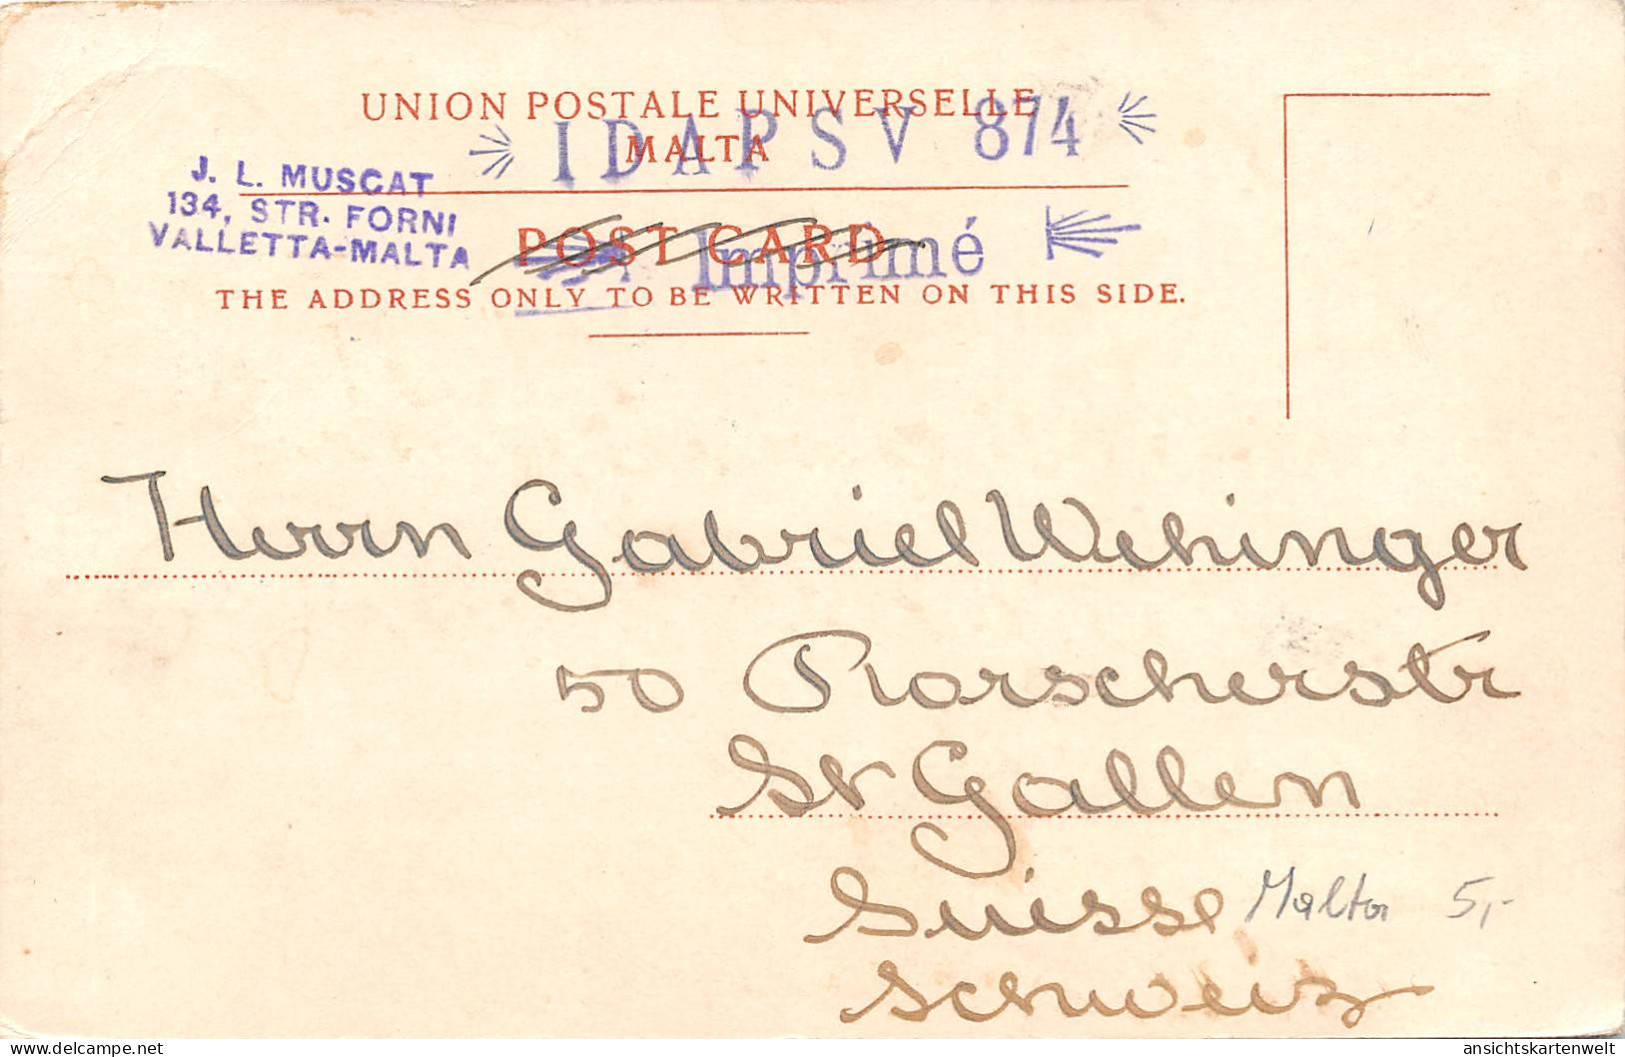 UNION POSTALE UNIVERSELLE
MALTA
* IDAPSV 874 *
J. L. MUSCAT
134, STR. FORNI
VALLETTA-MALTA
POST CARD
Imprimé
THE ADDRESS ONLY TO BE WRITTEN ON THIS SIDE.
Herrn Gabriel Wehinger
50 Rorscherstr
St Gallen
Suisse
Malta 5,-
Schweiz
ansichtskartenwelt